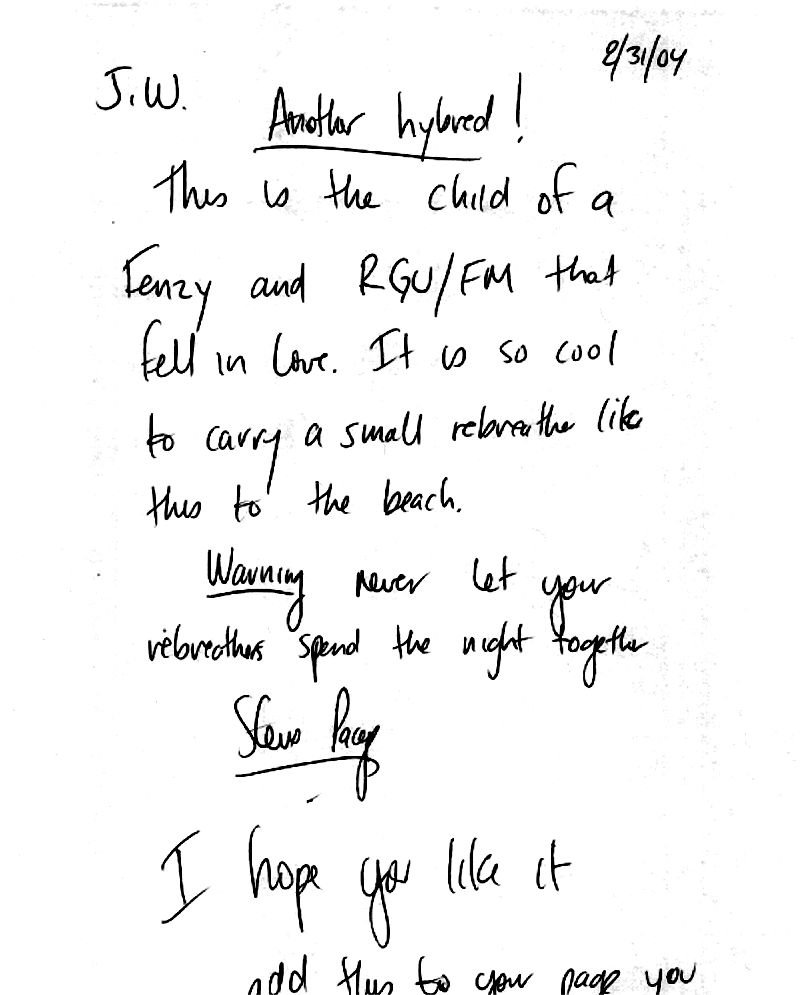 8/31/04
J.W.
Another hybred!
This is the child of a
Fenzy and RGU/FM that
fell in love. It is so cool
to carry a small rebreather like
this to the beach.
Warning never let your
rebreathers spend the night together
Steve
I hope you like it
add this to your page you